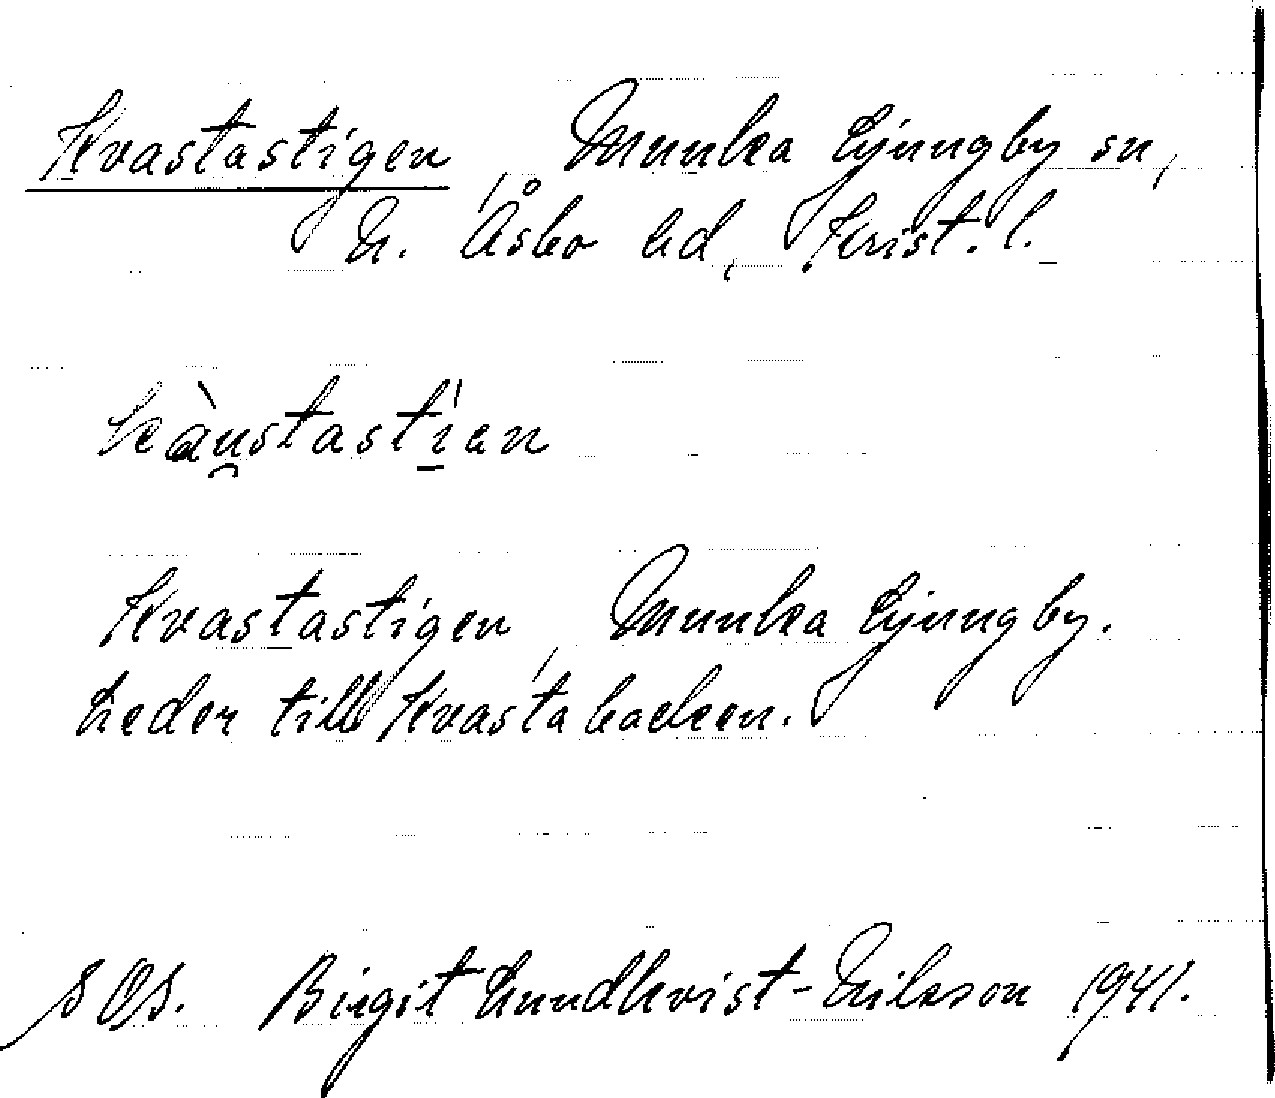 Kvastastigen, Munka Ljungby sn,
N. Åsbo hd, Krist. l.
kàu̯stastí̠en
Kvastastigen, Munka Ljungby.
Leder till Kvastabacken.
SOS. Birgit Lundkvist-Nilsson 1941.